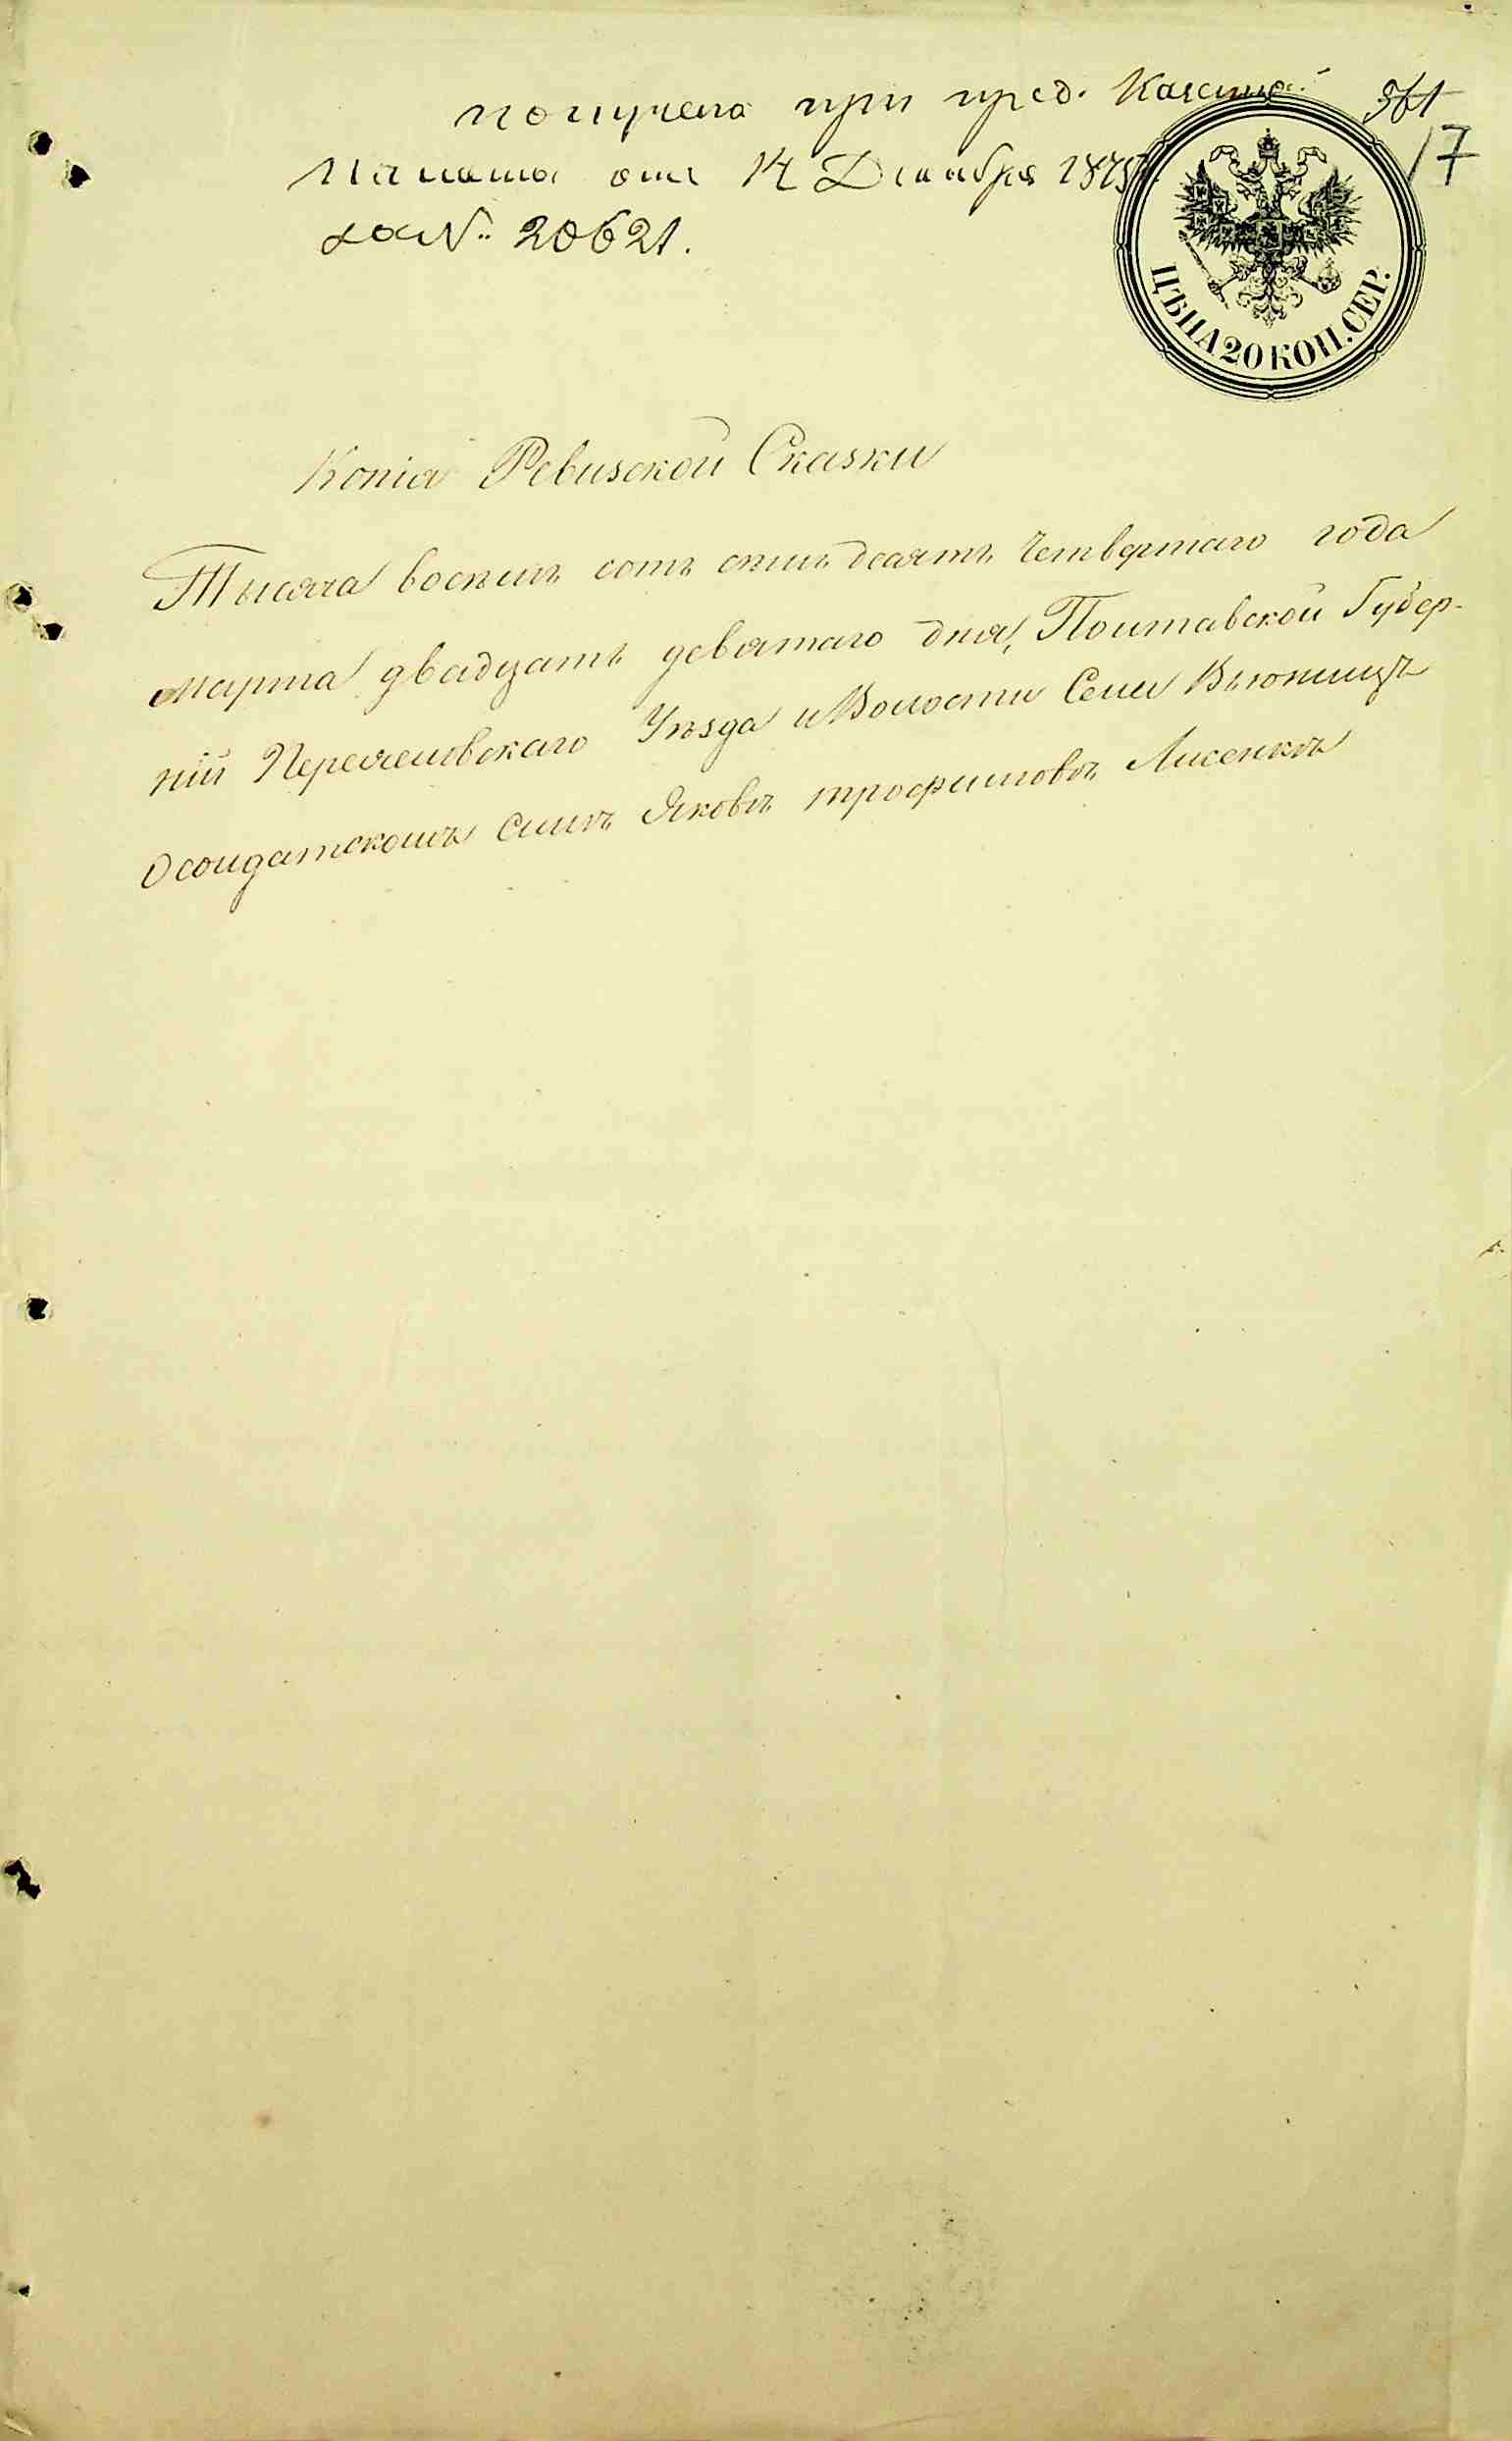 получена при пред. Казенной
Палаты отъ 14 Декабря 187
за № 20621.
17
ЦѢНА 20 КОП. СЕР.
Копія Ревизской Сказки
Тысяча восемь сотъ семьдесятъ четвертаго года
Марта двадцать девятаго дня, Полтавской Губер-
ніи Переяславскаго Уѣзда и Волости Села Вьюницъ
Осолдатскомъ сынѣ Яковѣ трофимовѣ Лисенкѣ